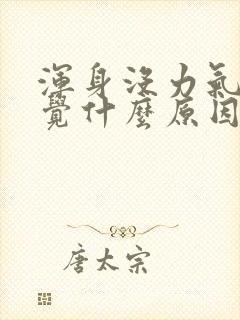 渾身沒力氣
覺什麼原因
唐太宗